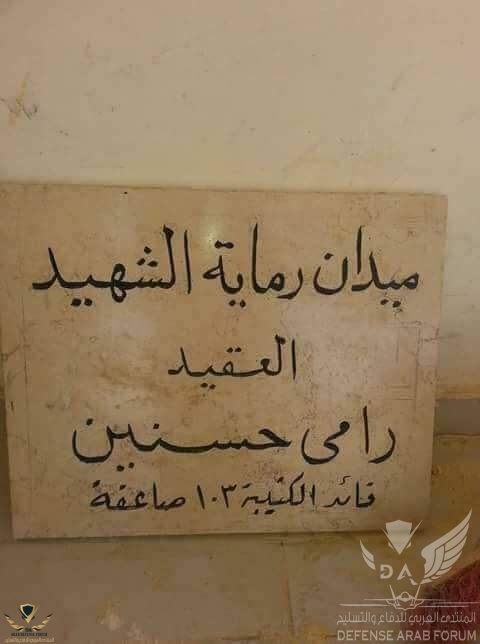 ميدان رماية الشهيد
العقيد
رامى حسنين
قائد الكتيبة ١٠٣ صاعقة
المنتدى العربي للدفاع والتسليح
DEFENSE ARAB FORUM